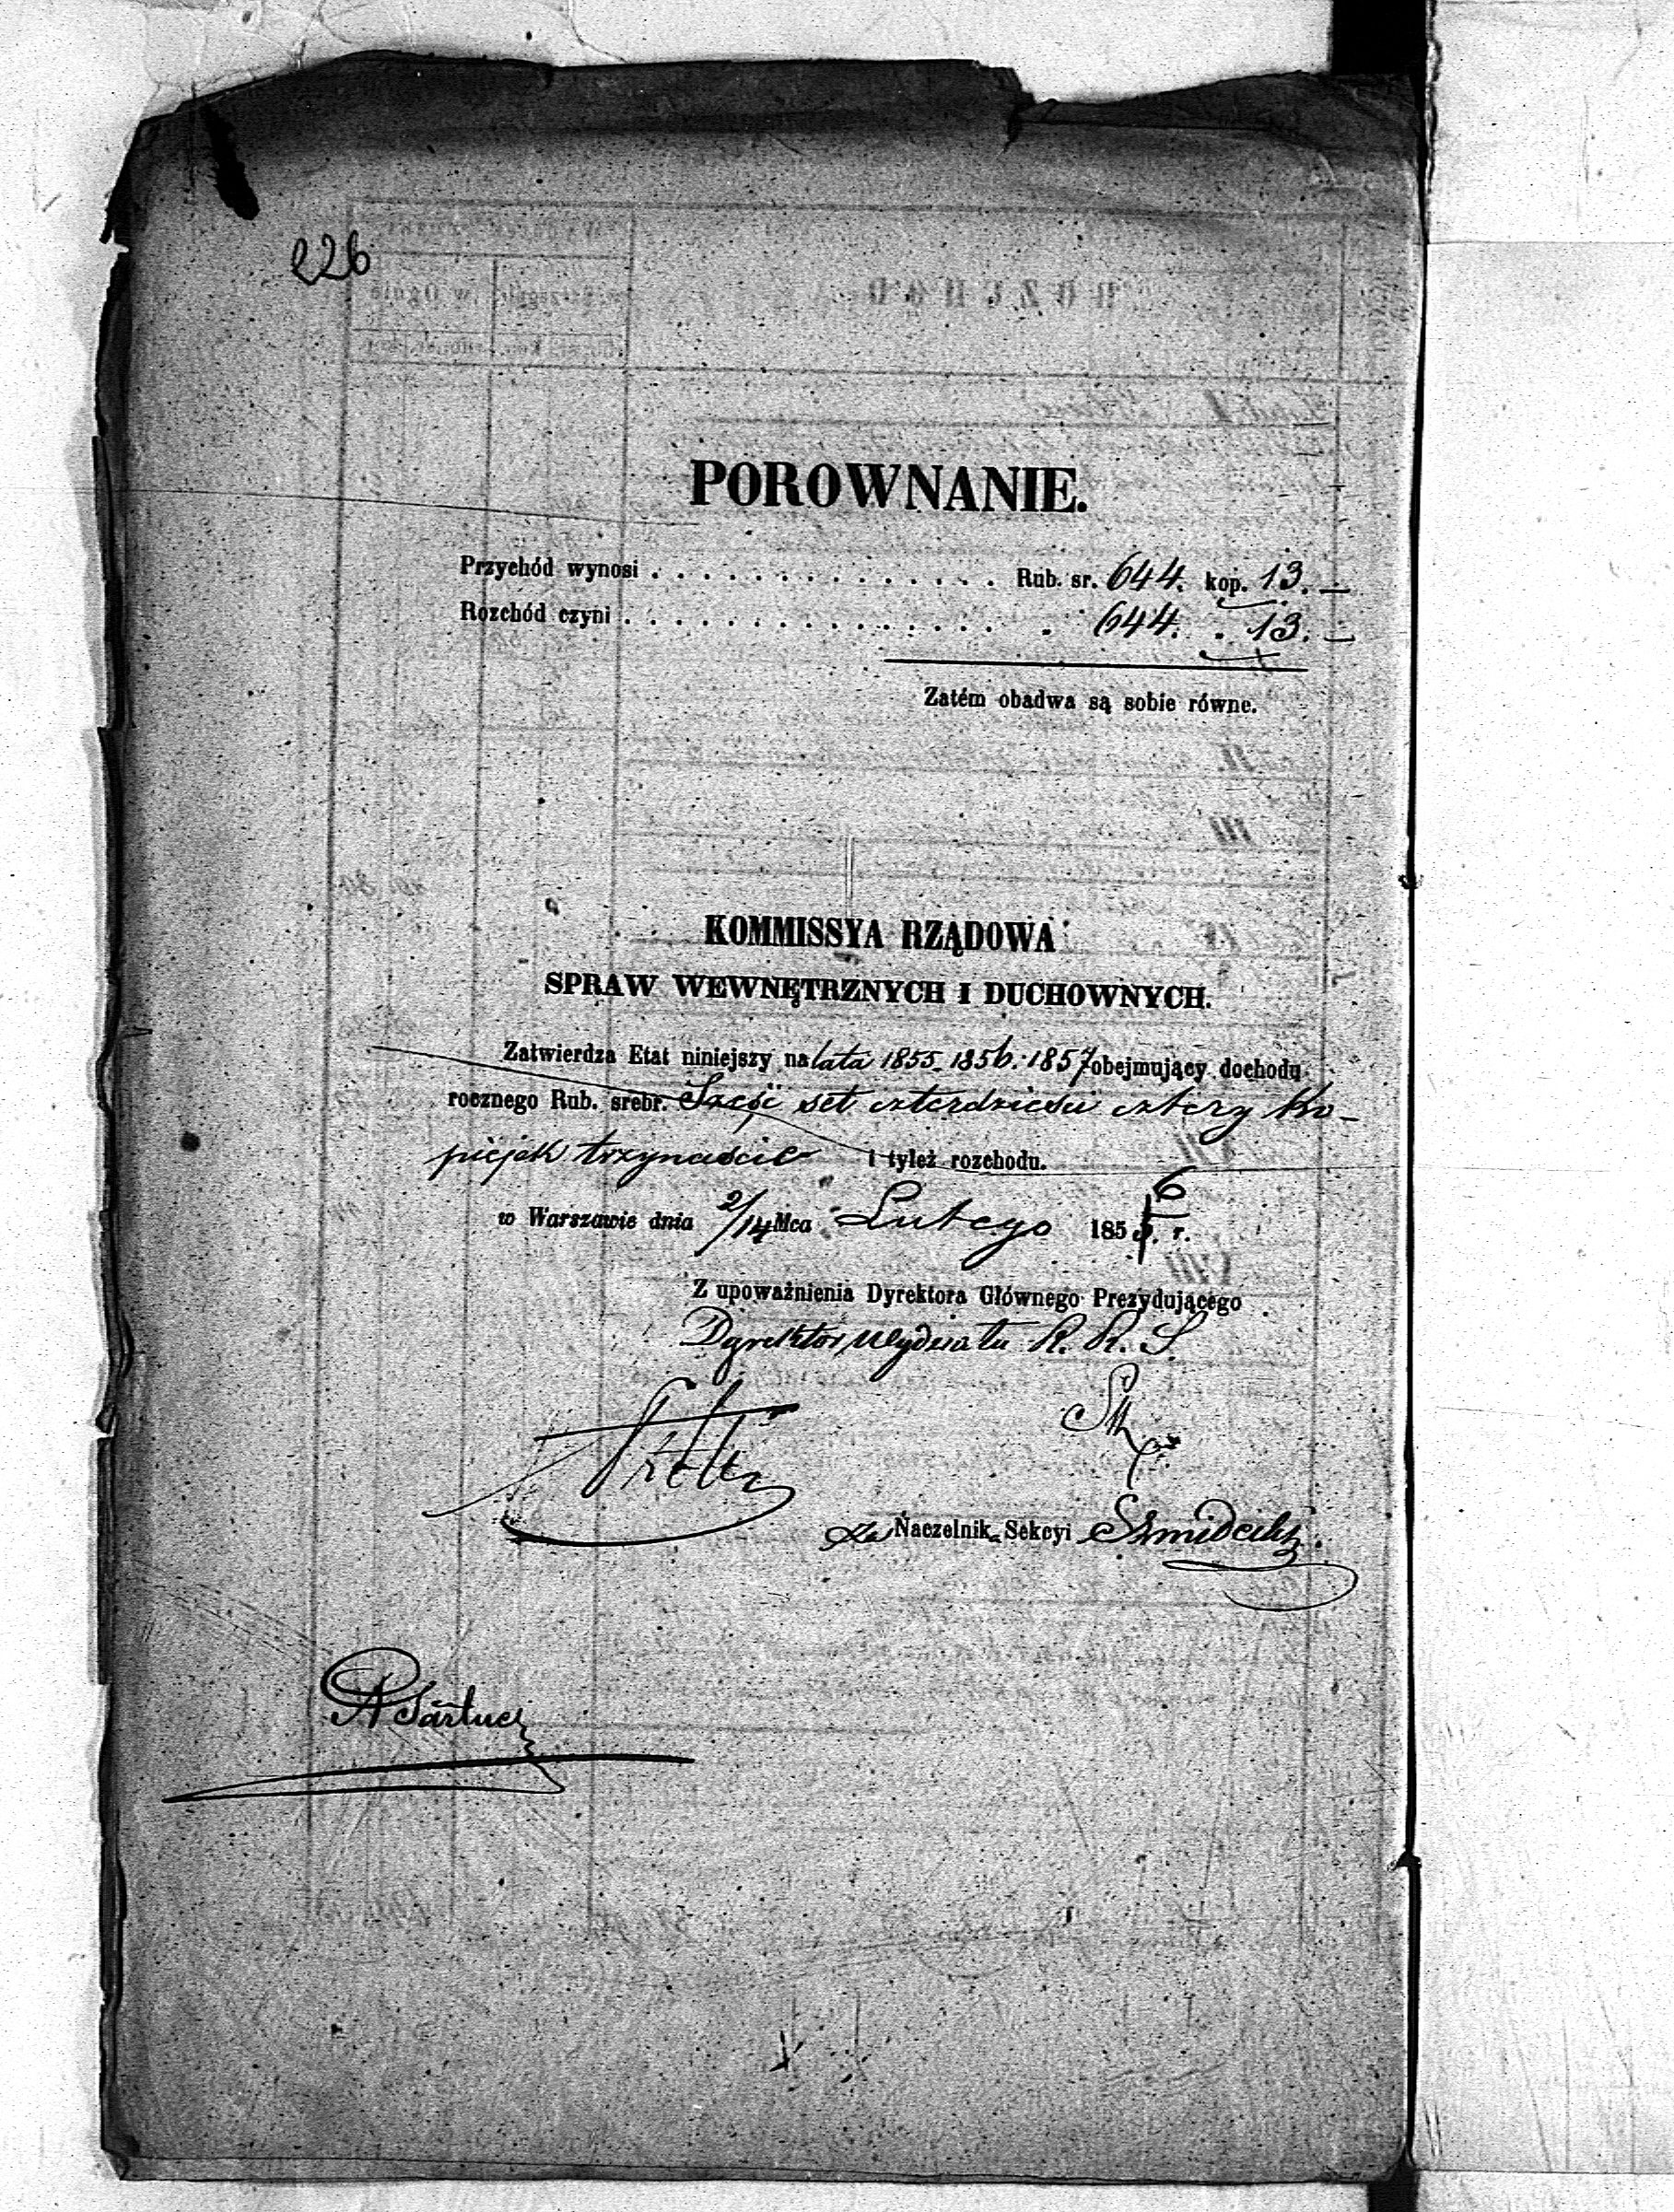 226
POROWNANIE.
Przychód wynosi . . . . . . . . . . . . . . Rub. sr. 644. kop. 13. —
Rozchód czyni . . . . . . . . . . . . . . . . 644. . 13. —
Zatém obadwa są sobie równe.
KOMMISSYA RZĄDOWA
SPRAW WEWNĘTRZNYCH I DUCHOWNYCH.
Zatwierdza Etat niniejszy na lata 1855. 1856. 1857 obejmujący dochodu
rocznego Rub. srebr. Sześć set czterdzieści cztery Ko-
piejek trzynaście i tyleż rozchodu.
w Warszawie dnia 2/14 Mca Lutego 1856 r.
Z upoważnienia Dyrektora Głównego Prezydującego
Dyrektor Wydziału R. R. S.
Za Naczelnik Sekcyi